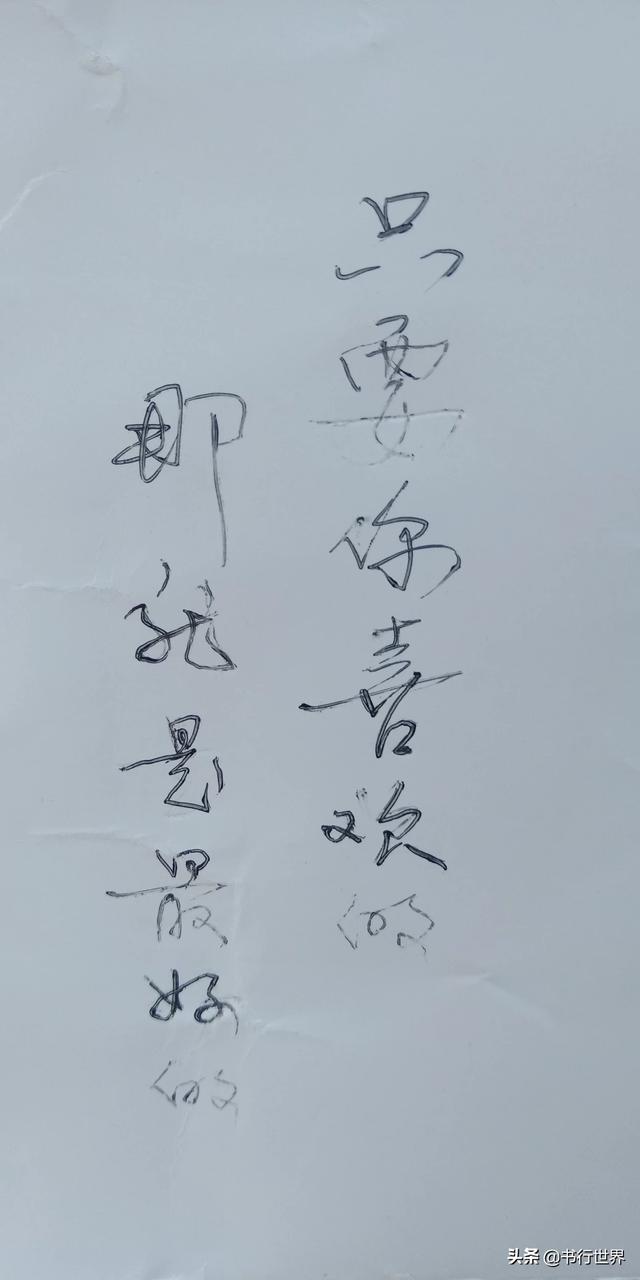 只要你喜欢的
那就是最好的
头条 @书行世界